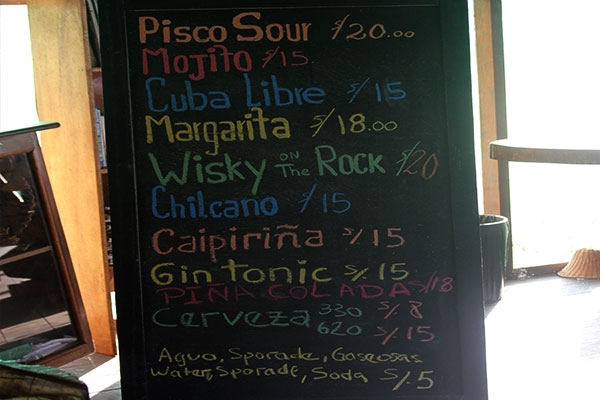 Pisco Sour S/20.00
Mojito S/15.
Cuba Libre S/15
Margarita S/18.00
Wisky on The Rock S/20
Chilcano S/15
Caipiriña S/.15
Gin tonic S/.15
PIÑA COLADA S/18
Cerveza 330 S/.8
620 S/.15
Agua, Sporade, Gaseosas
Water, Sporade, Soda S/.5